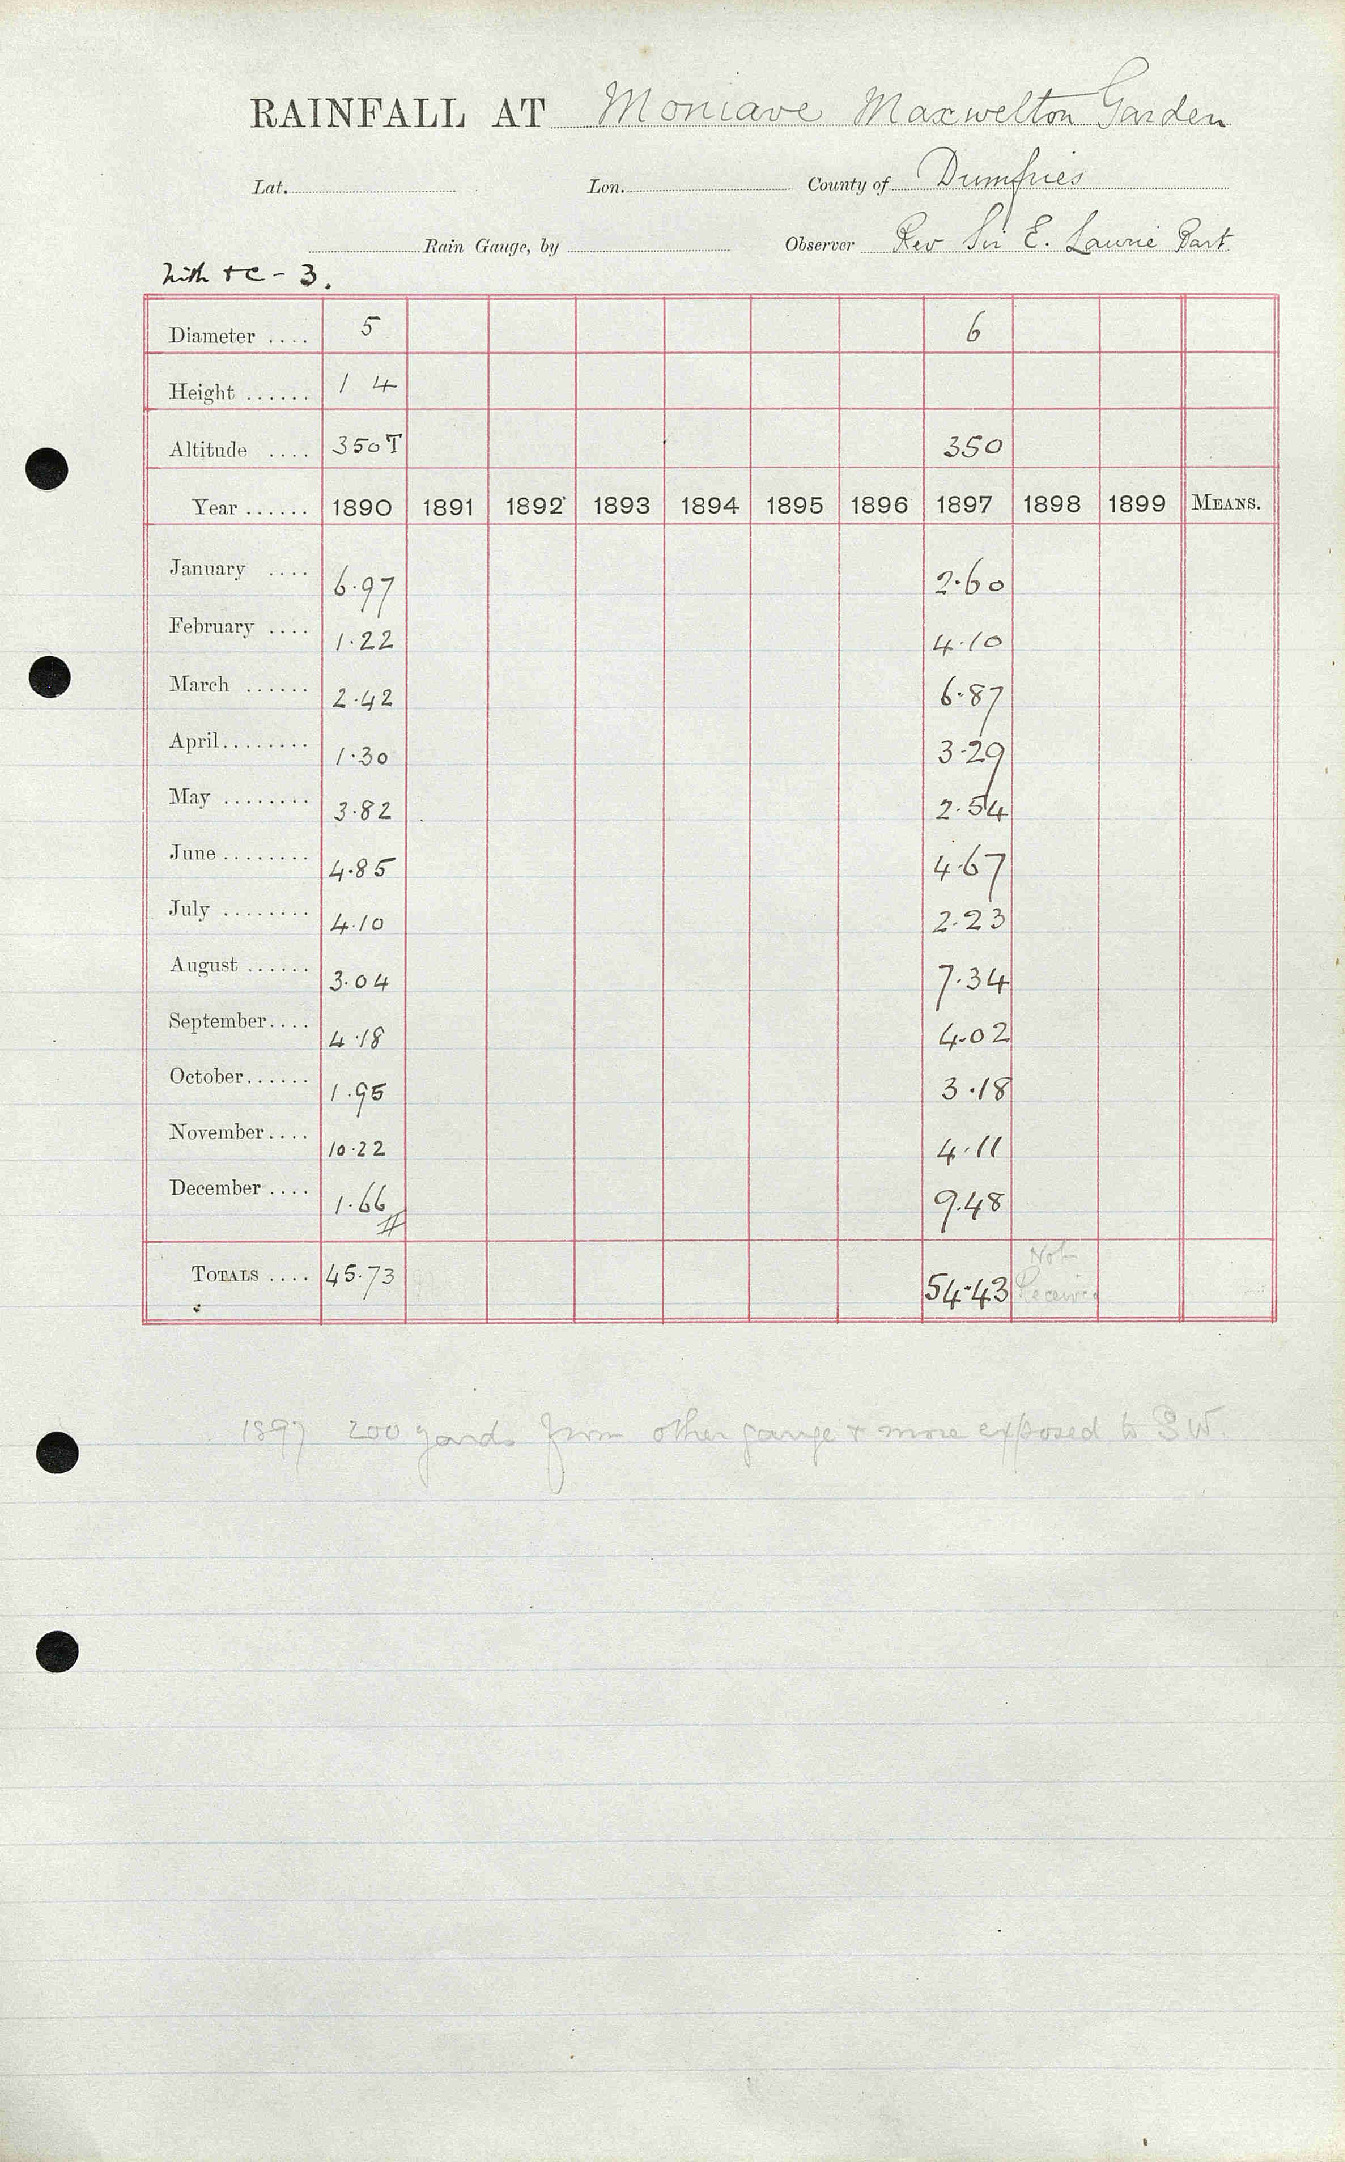 RAINFALL AT Moniave Maxwelton Garden
Lat. Lon. County of Dumfries
Rain Gauge, by Observer Rev Sir E. Laurie Bart.
Nith + C - 3.
Diameter .... 5 6
Height ...... 1 4
Altitude .... 350T 350
Year ...... 1890 1891 1892 1893 1894 1895 1896 1897 1898 1899 MEANS.
January .... 6.97 2.60
February .... 1.22 4.10
March ...... 2.42 6.87
April........ 1.30 3.29
May ........ 3.82 2.54
June ........ 4.85 4.67
July ........ 4.10 2.23
August ...... 3.04 7.34
September.... 4.18 4.02
October...... 1.95 3.18
November.... 10.22 4.11
December .... 1.66 9.48
TOTALS .... 45.73 54.43 Not Received
1897 200 yards from other gauge + more exposed to SW.